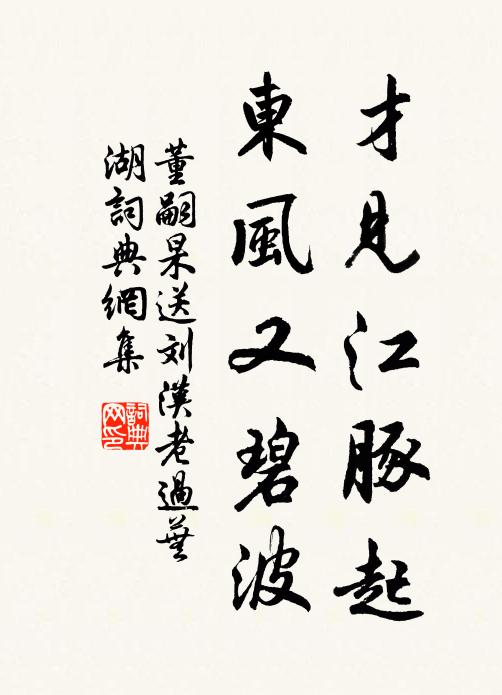 才見江豚起
東風又碧波
董嗣杲送刘漢老過蕪
湖詞典網集
詞典
网印